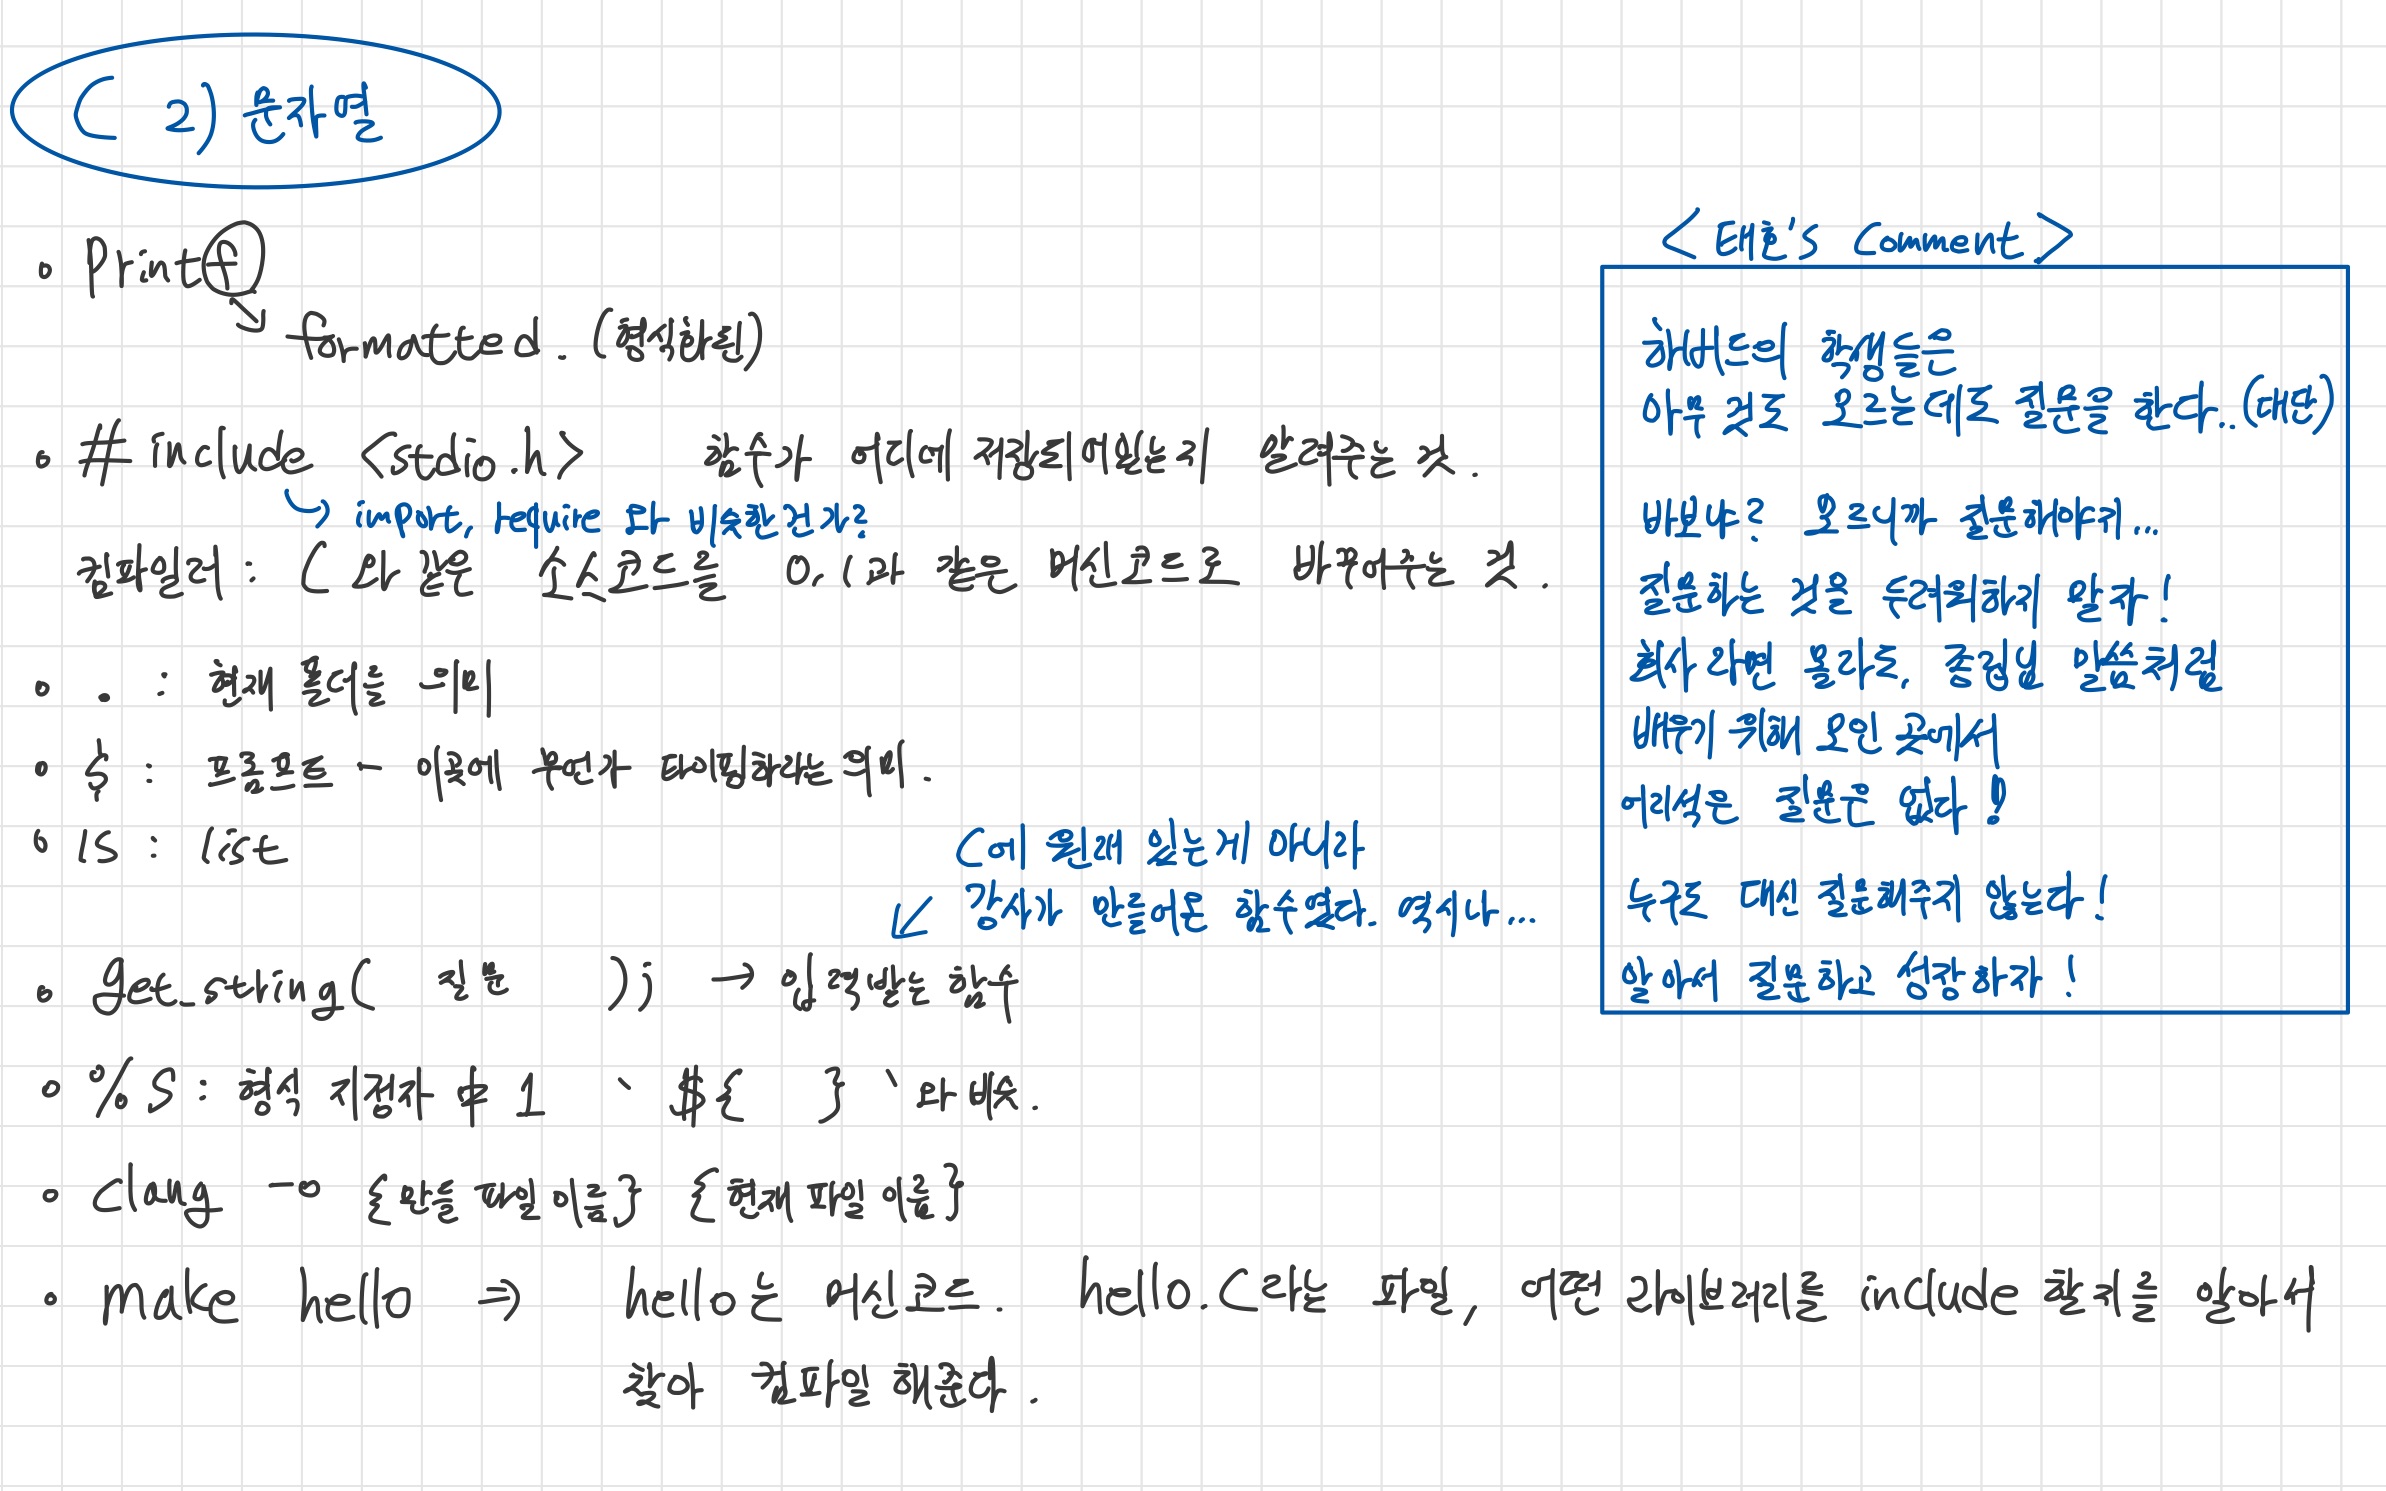 C 2) 문자열
• printf
formatted. (형식화된)
• #include <stdio.h> 함수가 어디에 저장되어있는지 알려주는 것.
import, require 와 비슷한건가?
컴파일러 : C 와 같은 소스코드를 0, 1과 같은 머신코드로 바꾸어주는 것.
• . : 현재 폴더를 의미
• $ : 프롬프트 - 이곳에 무언가 타이핑하라는 의미.
• ls : list
C에 원래 있는게 아니라
강사가 만들어온 함수였다. 역시나...
• get_string( 질문 ); → 입력받는 함수
• %s : 형식 지정자 # 1 ` ${ } ` 와 비슷.
• clang -o {만들 파일 이름} {현재 파일 이름}
• make hello ⇒ hello는 머신코드. hello.C 라는 파일, 어떤 라이브러리를 include 할 지를 알아서
찾아 컴파일 해준다.
<태호's Comment>
하버드의 학생들은
아무 것도 모르는데도 질문을 한다..(대단)
바보냐? 모르니까 질문해야지...
질문하는 것을 두려워하지 말자!
회사 라면 몰라도, 종립님 말씀처럼
배우기 위해 모인 곳에서
어리석은 질문은 없다!
누구도 대신 질문해주지 않는다!
알아서 질문하고 성장하자!